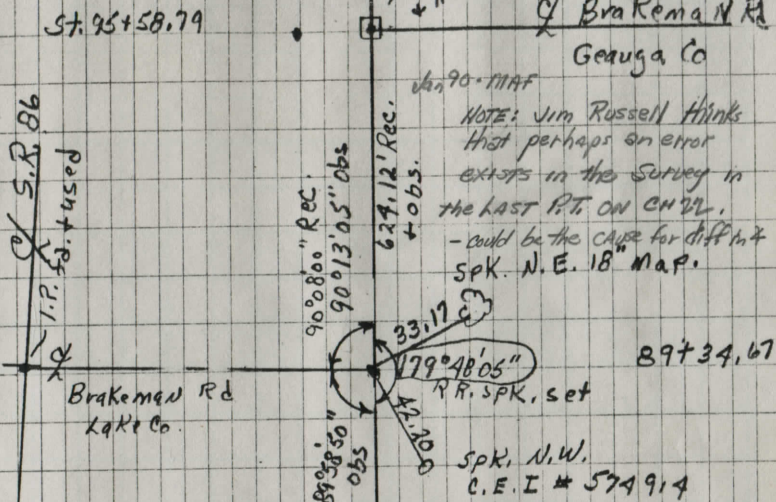 St. 95+58.79
℄ Brakeman Rd
Geauga Co
Jan 90 - MAF
NOTE: Jim Russell thinks
that perhaps an error
exists in the Survey in
the LAST P.T. ON CH 22.
- could be the cause for diff in ∡
Spk. N.E. 18" Map.
℄ S.R. 86
I.P. fd. & used
90°08'00" Rec.
90°13'05" obs
624.12' Rec.
+ obs.
33.17
179°48'05"
89+34.67
R.R. spk. set
Brakeman Rd
Lake Co.
89°58'50"
obs
42.20
Spk. N.W.
C.E.I # 574914